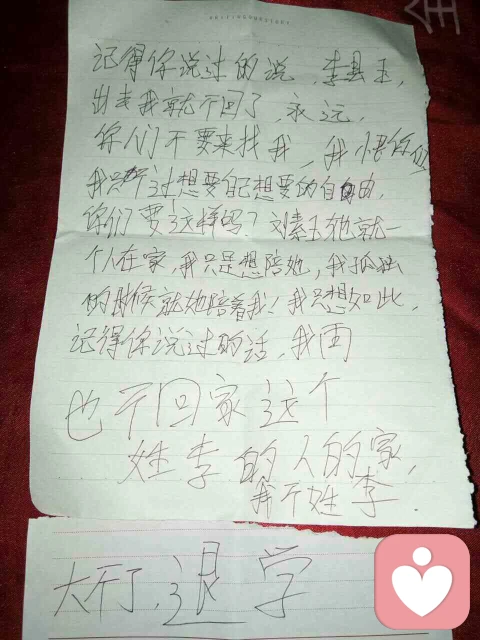 记得你说过的说，李县玉，
出去我就不回了，永远，
你们不要来找我，我恨你们
我只不过想要自己想要的自由，
你们要这样吗？刘素玉她就一
个人在家，我只是想陪她，我孤独
的时候就她陪着我！我只想如此，
记得你说过的话，我
也不回家这个
姓李的人的家，
我不姓李．
大不了，退学